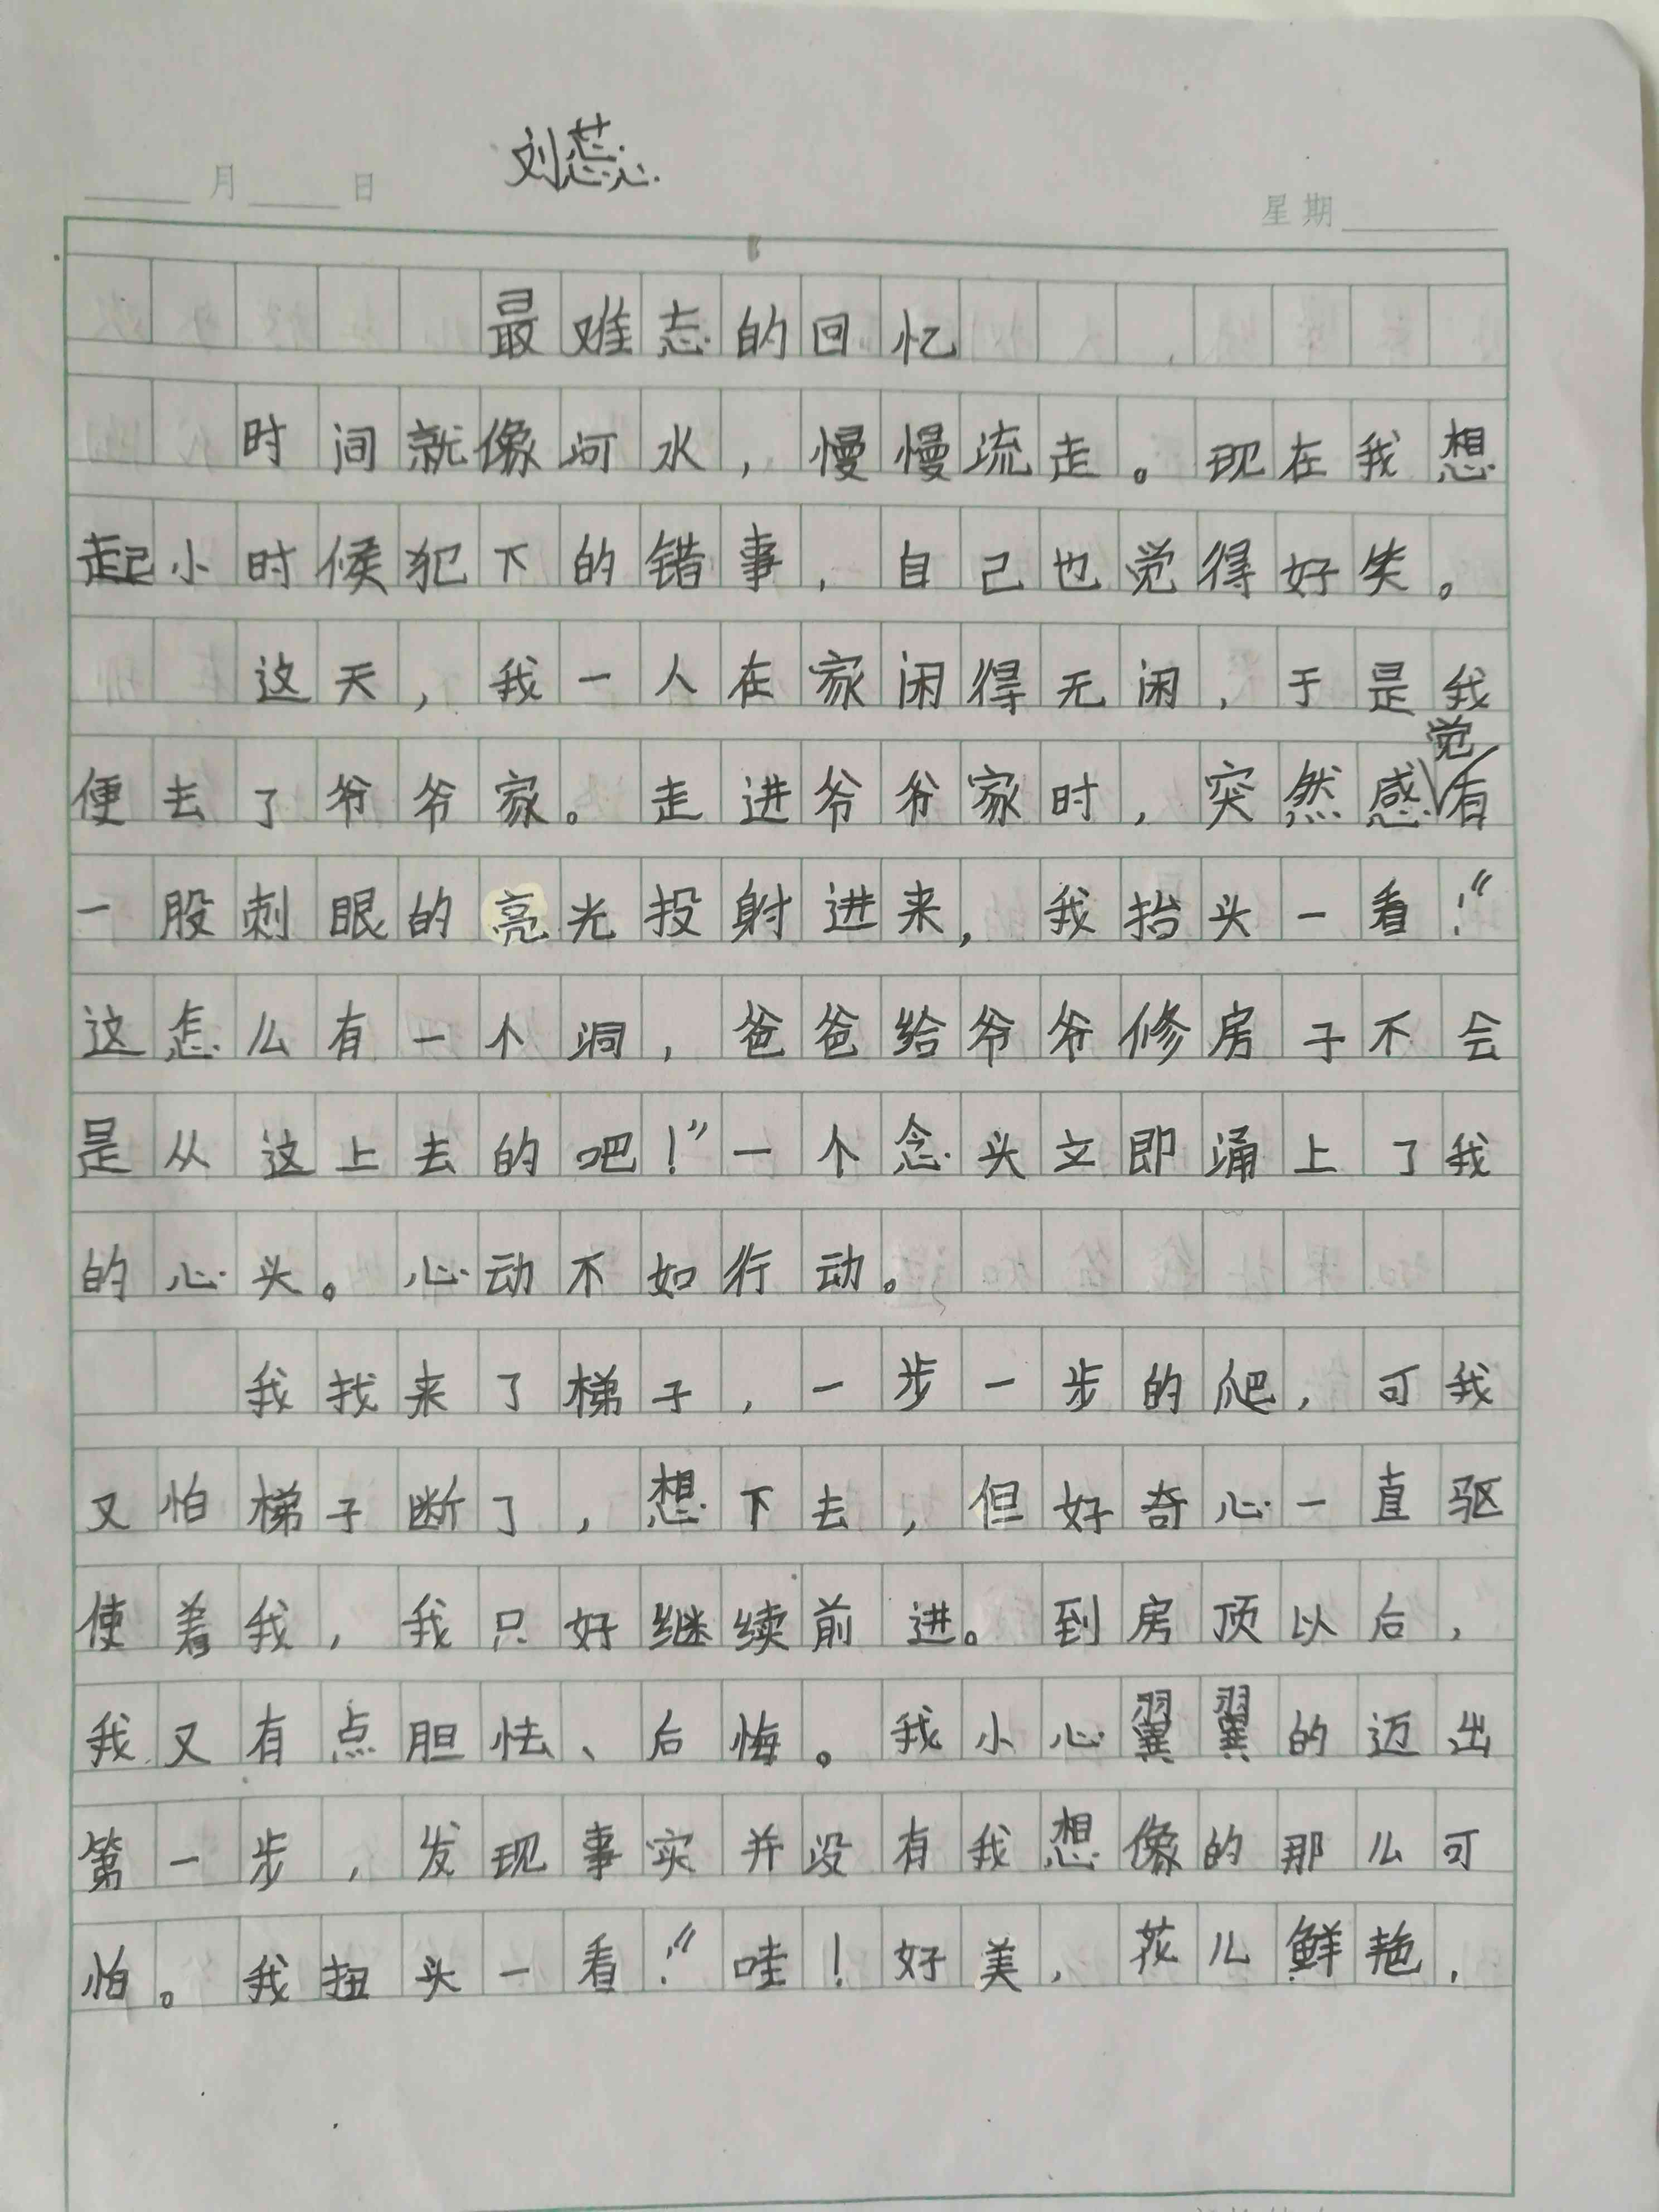 刘蕊
月 日
星期
最难忘的回忆
时间就像河水，慢慢流走。现在我想
起小时候犯下的错事，自己也觉得好笑。
这天，我一人在家闲得无闲，于是我
便去了爷爷家。走进爷爷家时，突然感觉有
一股刺眼的亮光投射进来，我抬头一看：“
这怎么有一个洞，爸爸给爷爷修房子不会
是从这上去的吧！”一个念头立即涌上了我
的心头。心动不如行动。
我找来了梯子，一步一步的爬，可我
又怕梯子断了，想下去，但好奇心一直驱
使着我，我只好继续前进。到房顶以后，
我又有点胆怯、后悔。我小心翼翼的迈出
第一步，发现事实并没有我想像的那么可
怕。我扭头一看：“哇！好美，花儿鲜艳，